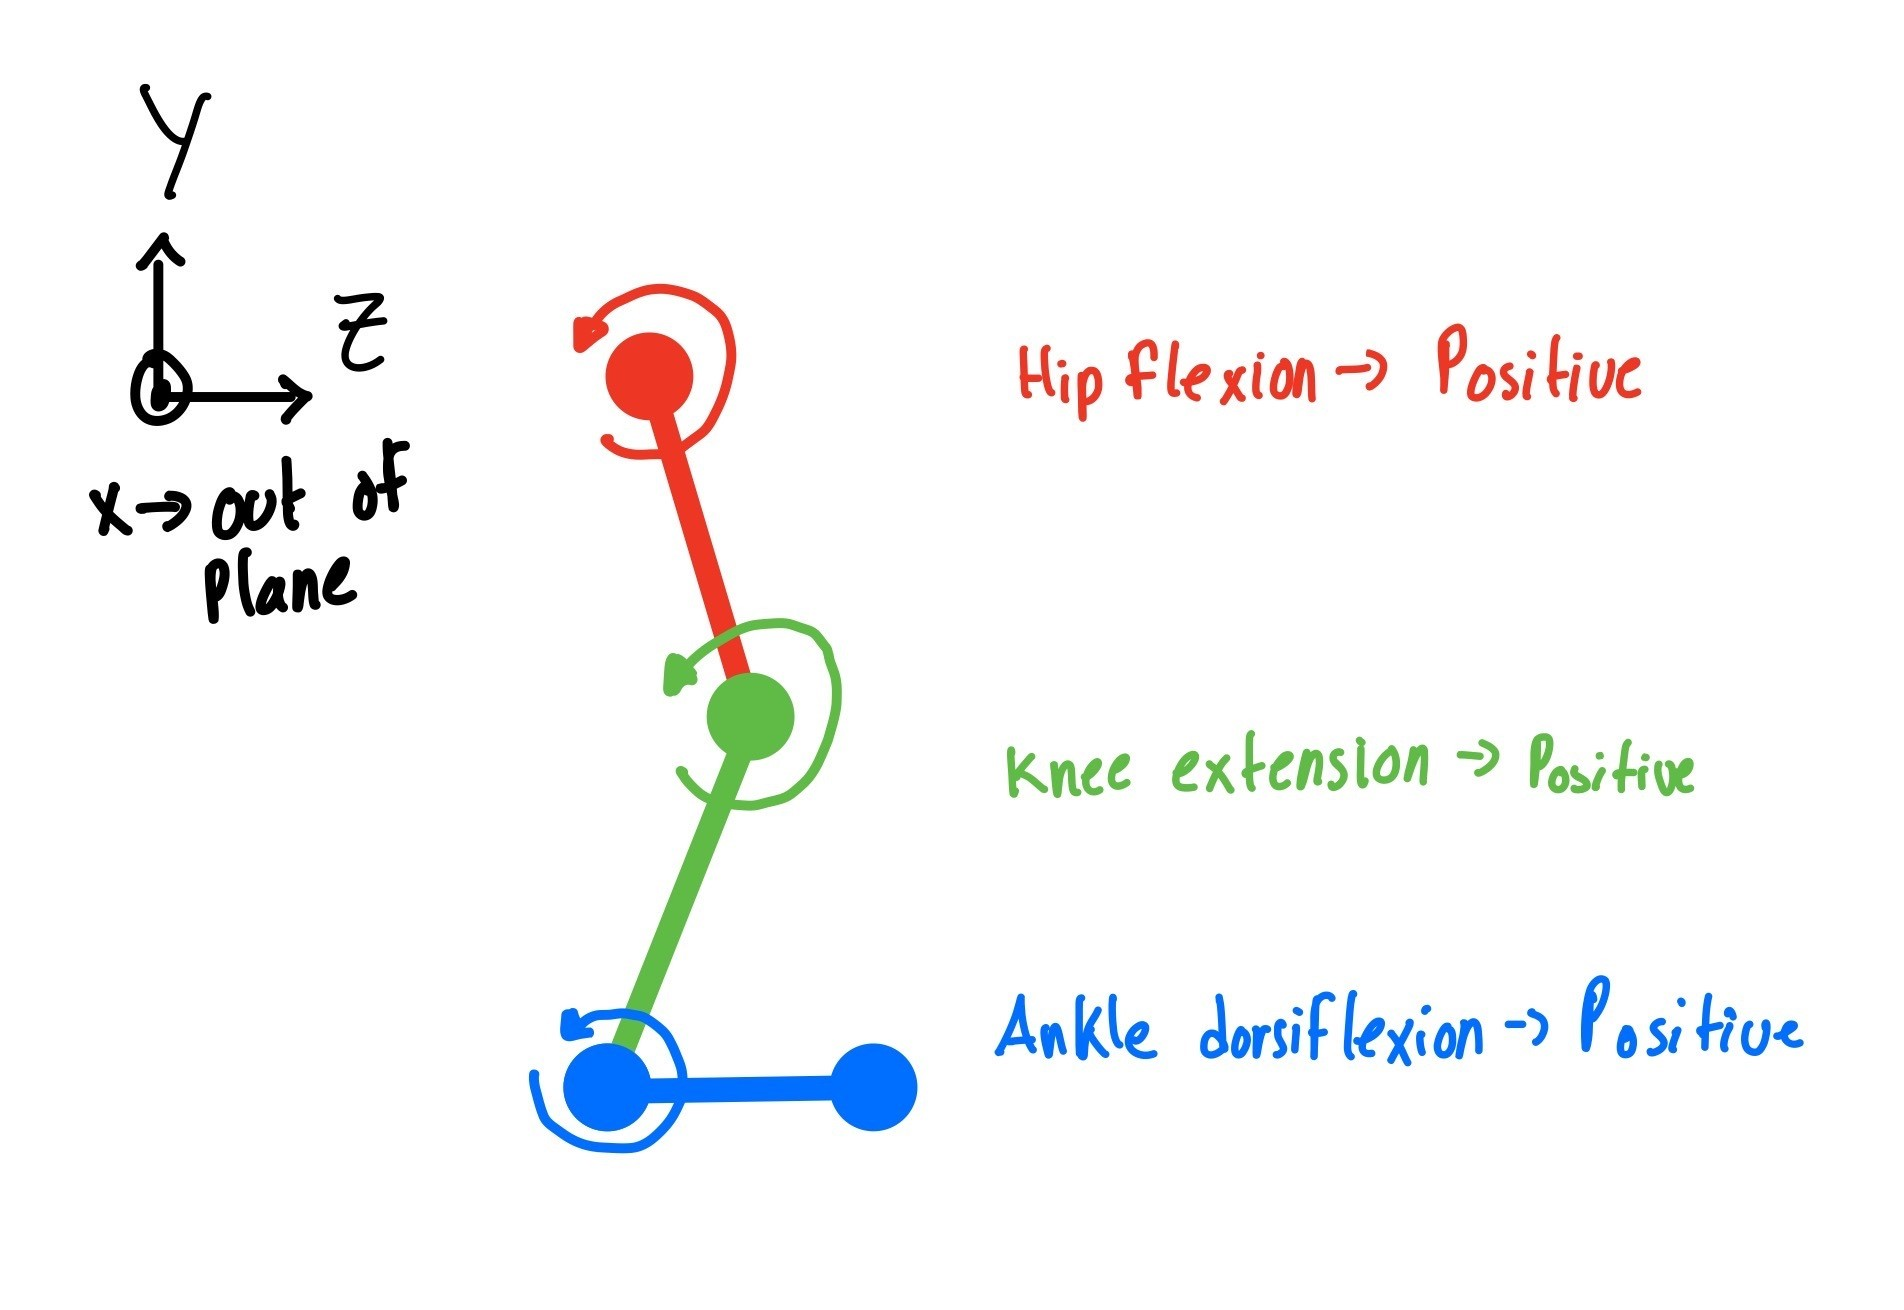 Y
Z
X → out of
Plane
Hip flexion → Positive
Knee extension → Positive
Ankle dorsiflexion → Positive